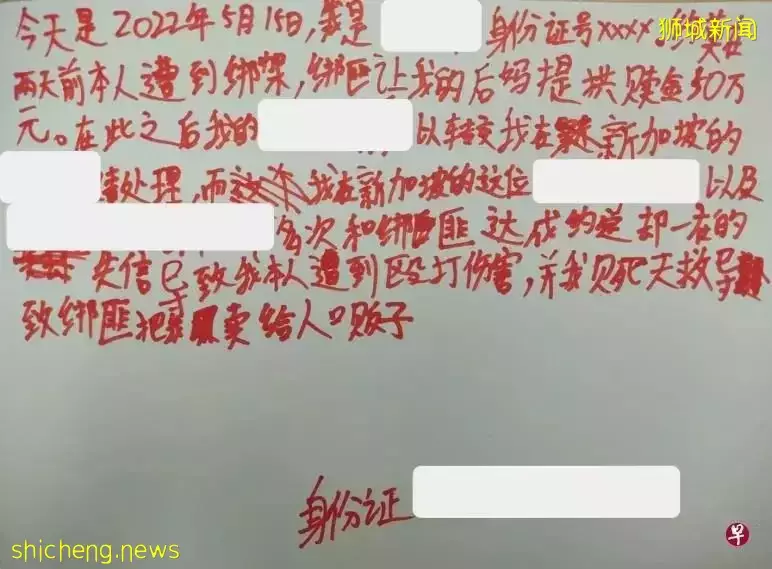 今天是2022年5月15日,我是 身份证号xxxx
狮城新闻
两天前本人遭到绑架,绑匪让我的后妈提拱赎金50万
元。在此之后我的 以转 我在 新加坡的
处理,而 我在新加坡的这位 以及
多次和绑匪达成约 却一在的
失信 致我本人遭到殴打伤害,并 天救导
致绑匪把 卖给人口贩子
身份证
早
shicheng.news